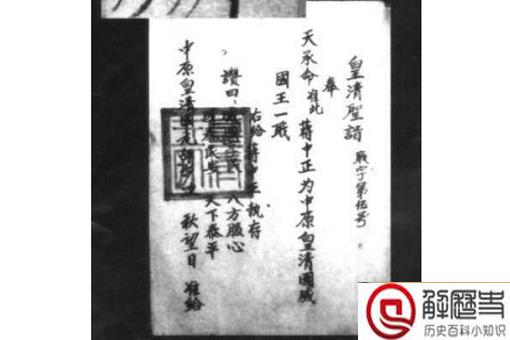 皇清聖誥 戰字第伍号
奉
天承命 准此 蔣中正为中原皇清國威
國王一戰
右给蔣中正執存
讚曰、 八方服心
天下泰平
中原皇清 秋望日 准给
解歷史
历史百科小知识